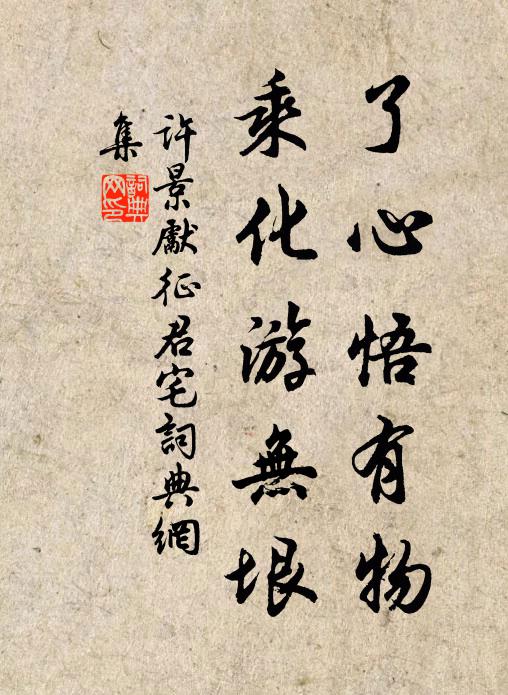 了心悟有物
乘化游無垠
許景獻征君宅詞典網
集
詞典
网印